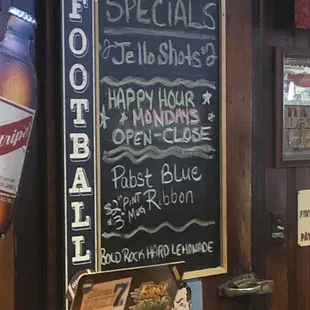 FOOTBALL
SPECIALS
Jello Shots $2
HAPPY HOUR
MONDAYS
OPEN-CLOSE
Pabst Blue
Ribbon
$2 PINT
$3 MUG
BOLD ROCK HARD LEMONADE
7